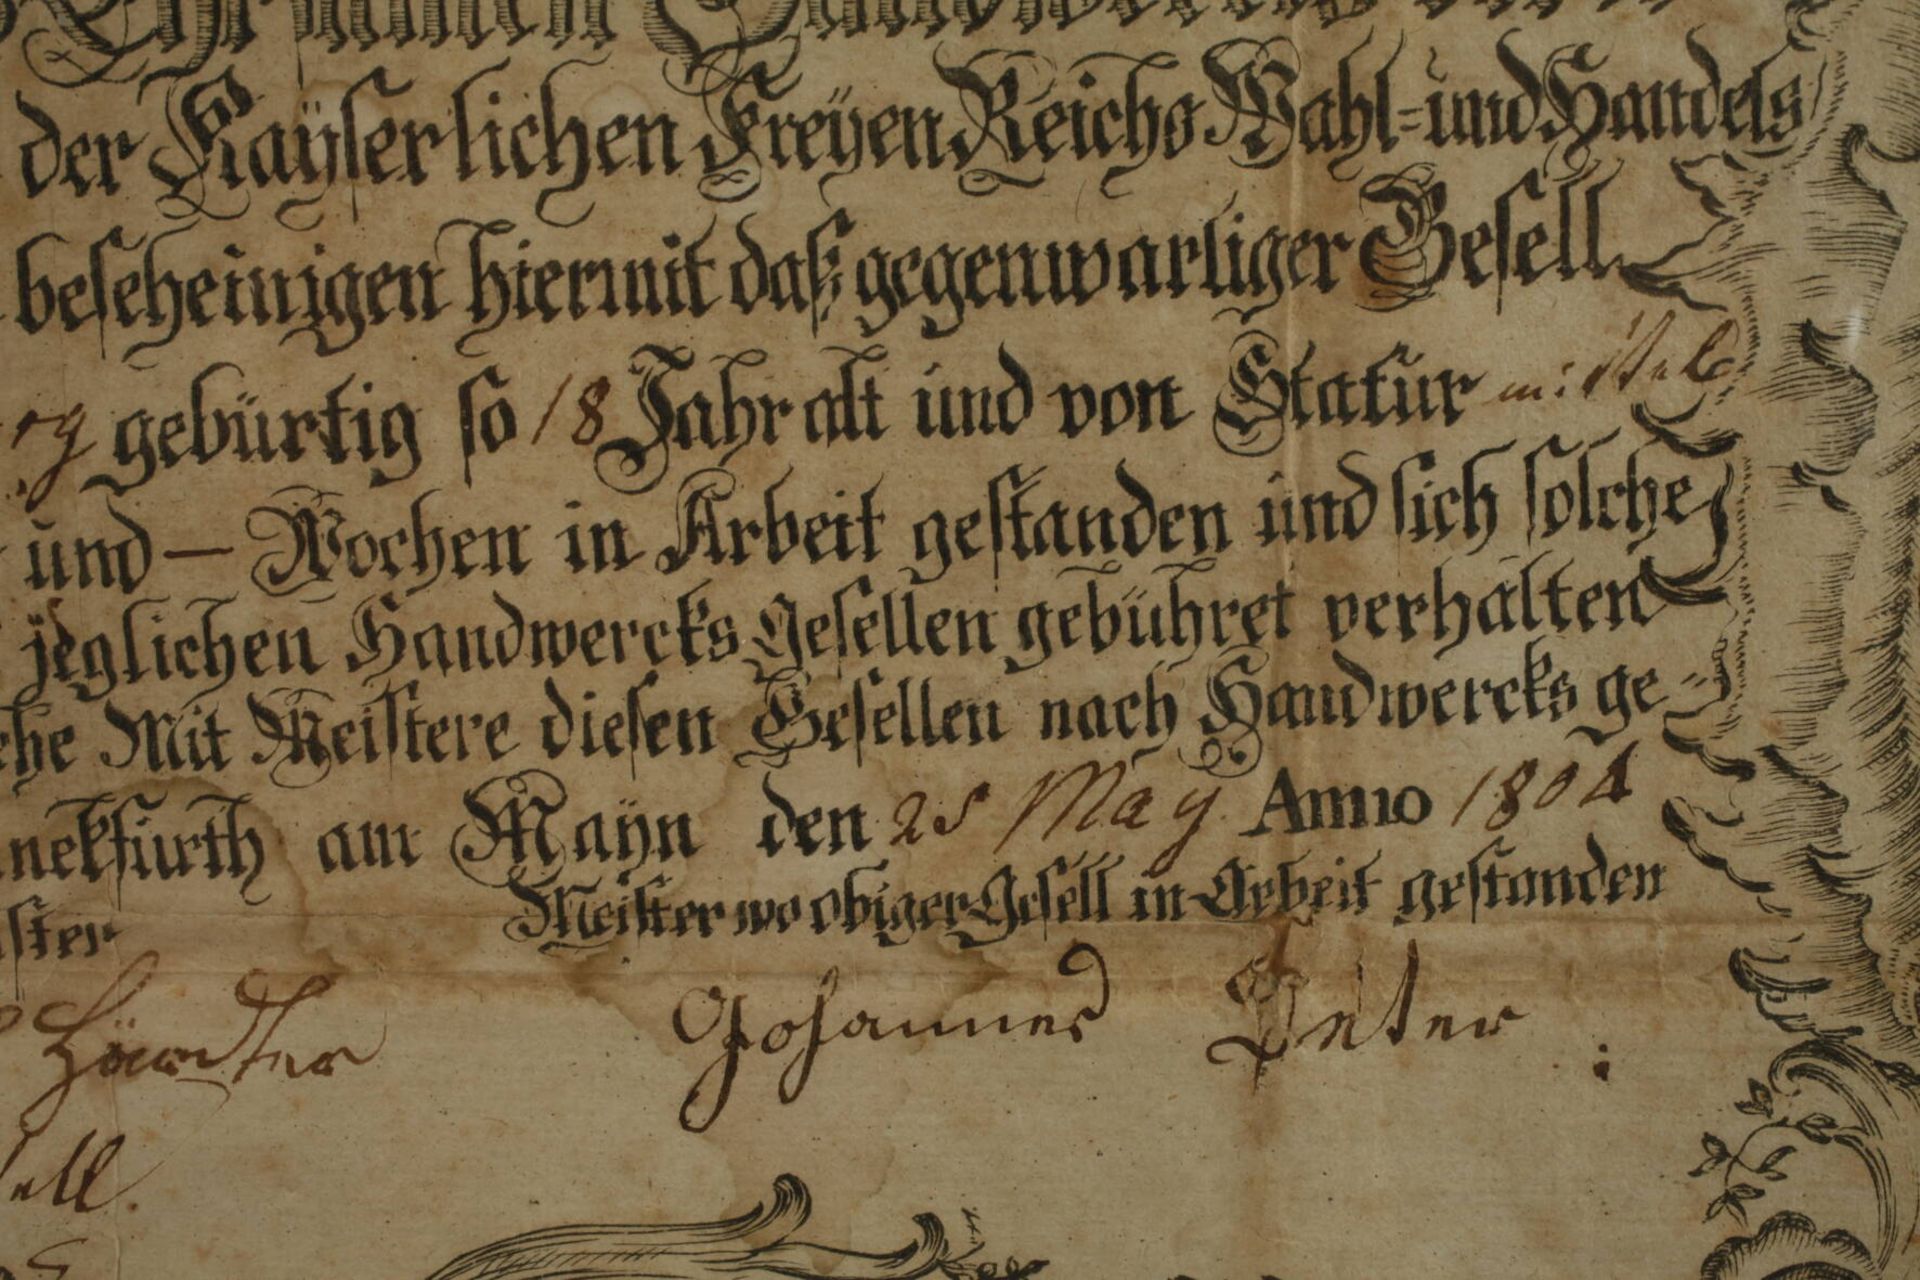 der Kaÿserlichen Freÿen Reichs Wahl- und Handels
bescheinigen hiermit daß gegenwartiger Gesell
rg gebürtig so 18 Jahr alt und von Statur mittel
und — Wochen in Arbeit gestanden und sich solche
jeglichen Handwercks Gesellen gebühret verhalten
che Mit Meistere diesen Gesellen nach Handwercks ge
nckfurth am Maÿn den 25 May Anno 1804
Meister wo obiger Gesell in Arbeit gestanden
ster
Johannes Peter